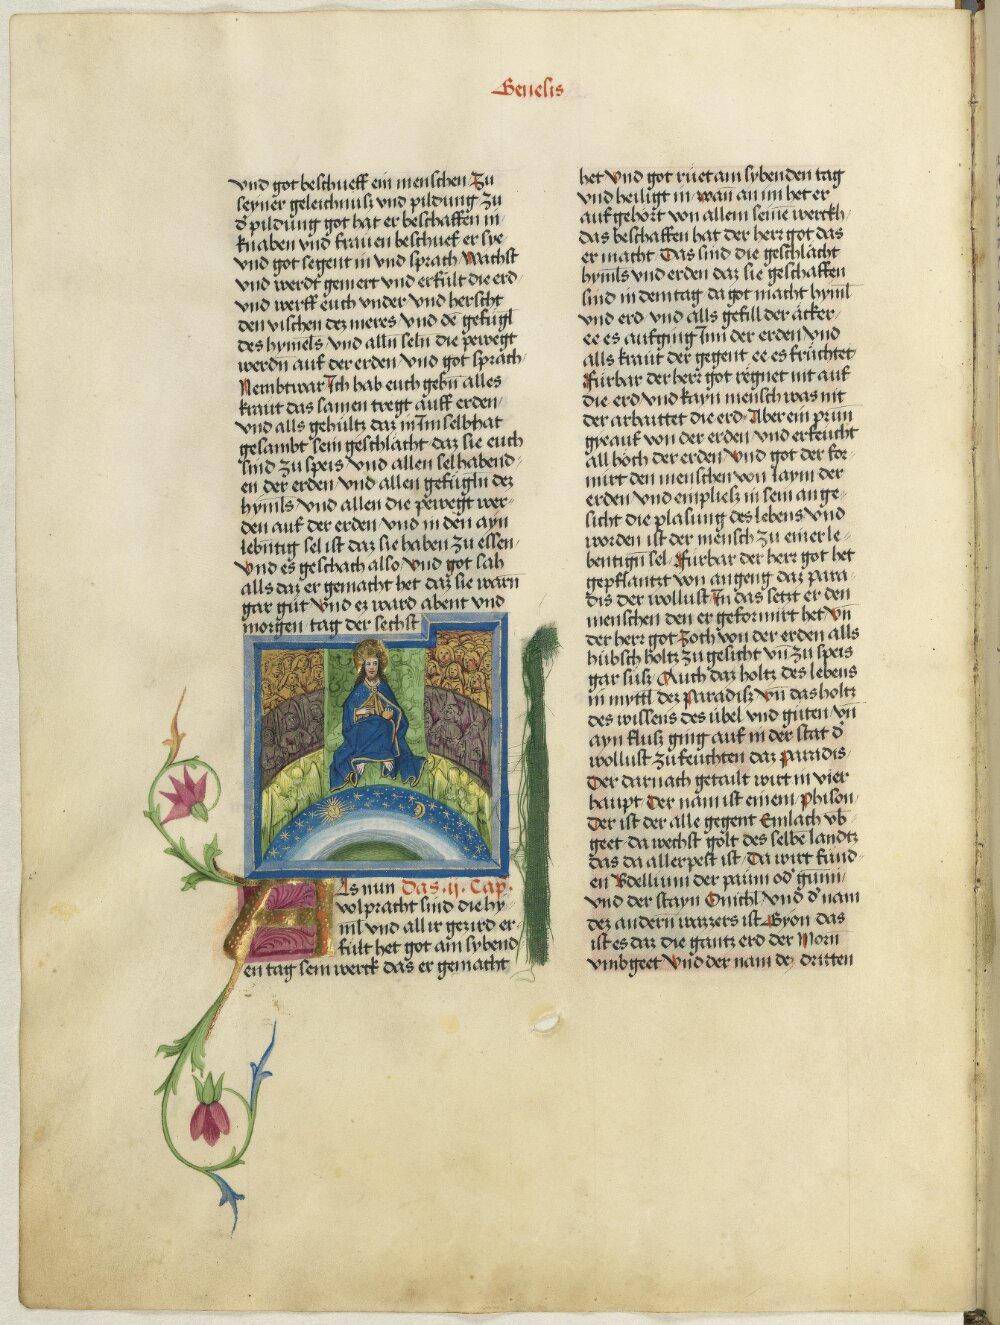 Genesis
vnd got beschueff ein menschen Zu
seyner geleichnuß vnd pildung zu
d' pildung got hat er beschaffen in
knaben vnd frauen beschuef er sye
vnd got segent in vnd sprach Wachst
vnd werdt gemert vnd erfült die erd
vnd werff euch vnder vnd herscht
den vischen dez meres vnd de gefügl
des hymels vnd alln seln die pewegt
werdn auf der erden vnd got sprach
Nembtwar Ich hab euch gebn alles
kraut das samen tregt auff erden
vnd alls gehültz daz in Im selb hat
gesambt sein geschlächt daz sie euch
sind zu speis vnd allen selhabend-
en der erden vnd allen gefügln dez
hymls vnd allen die pewegt wer-
den auf der erden vnd in den ayn
lebntig sel ist daz sie haben zu essen
vnd es geschach also vnd got sah
alls daz er gemacht het daz sie warn
gar gut vnd ez ward abent vnd
morgen tag der sechst
Als nun das .ij. Cap.
volpracht sind die hy-
ml vnd all ir gezird er-
fült het got am sybend
en tag sein werck das er gemacht
het vnd got ruet am sybenden tag
vnd heiligt in wan an im het er
aufgehört von allem seine werckh
das beschaffen hat der herr got das
er macht Das sind die geschlächt
hymls vnd erden daz sie geschaffen
sind in dem tag da got macht hyml
vnd erd vnd alls gefill der äcker
ee es aufging Inn der erden vnd
alls kraut der gegent ee es früchtet
fürbar der herr got regnet nit auf
die erd vnd kayn mensch was nit
der arbaittet die erd Aber ein prun
gye auf von der erden vnd erfeucht
all höch der erden vnd got der for-
mirt den menschen von laym der
erden vnd empließ in sein ange-
sicht die plasung des lebens vnd
worden ist der mensch zu einer le-
bentign sel fürbar der herr got het
gepflantzt von angeng daz para-
dis der wollust In das setzt er den
menschen den er geformirt het Vn
der herr got zoch von der erden alls
hübsch holtz zu gesicht vn zu speis
gar süß Auch daz holtz des lebens
in myttl dez paradiß vn das holtz
des wissens des übel vnd guten vn
ayn fluß ging auf in der stat d'
wollust zu feuchten daz paradis
Der darnach getailt wirt in vier
haupt Der nam ist einem Phison
Der ist der alle gegent Emlach vb-
geet da wechst golt des selbe landtz
das da allerpest ist Da wirt fund-
en Bdellium der paum od' gumi
vnd der stayn Onichl vnd d' nam
dez andern wazzers ist Gyon das
ist es daz die gantz erd der Morn
vmbgeet vnd der nam dez dritten